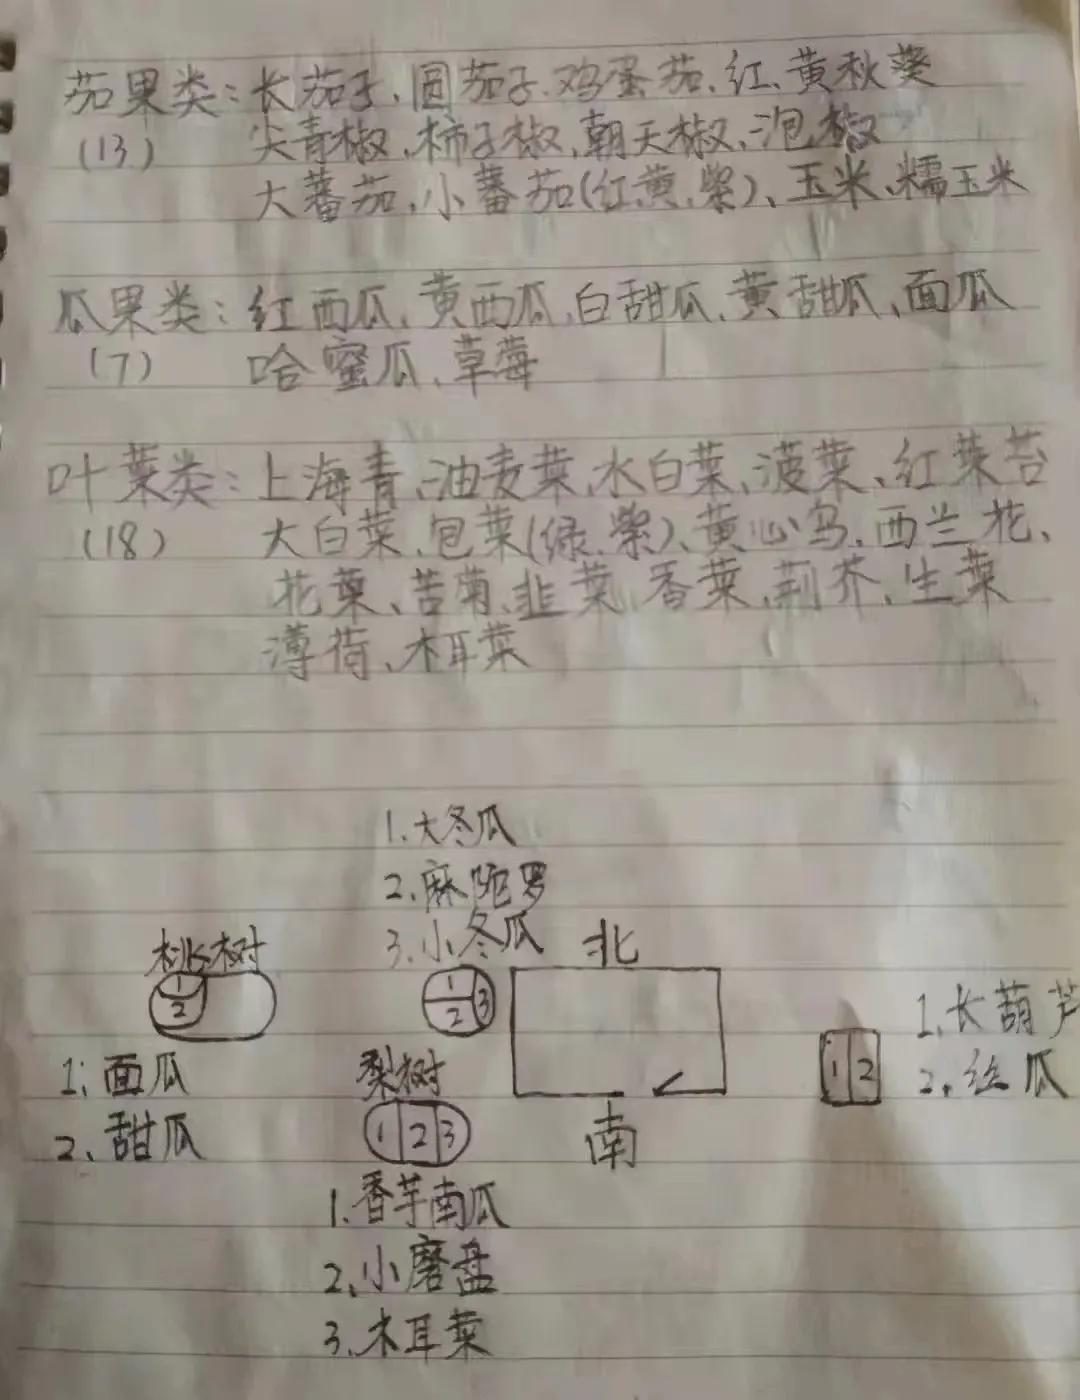 茄果类：长茄子、圆茄子、鸡蛋茄、红、黄秋葵
(13) 尖青椒、柿子椒、朝天椒、泡椒
大蕃茄、小蕃茄(红、黄、紫)、玉米、糯玉米
瓜果类：红西瓜、黄西瓜、白甜瓜、黄甜瓜、面瓜
(7) 哈蜜瓜、草莓
叶菜类：上海青、油麦菜、水白菜、菠菜、红菜苔
(18) 大白菜、包菜(绿、紫)、黄心乌、西兰花、
花菜、苦菊、韭菜、香菜、荆芥、生菜
薄荷、木耳菜
1、大冬瓜
2、麻陀罗
3、小冬瓜
北
桃树
1
2
1
2
3
1、面瓜
2、甜瓜
梨树
1 2 3
南
1 2
1、长葫芦
2、丝瓜
1、香芋南瓜
2、小磨盘
3、木耳菜